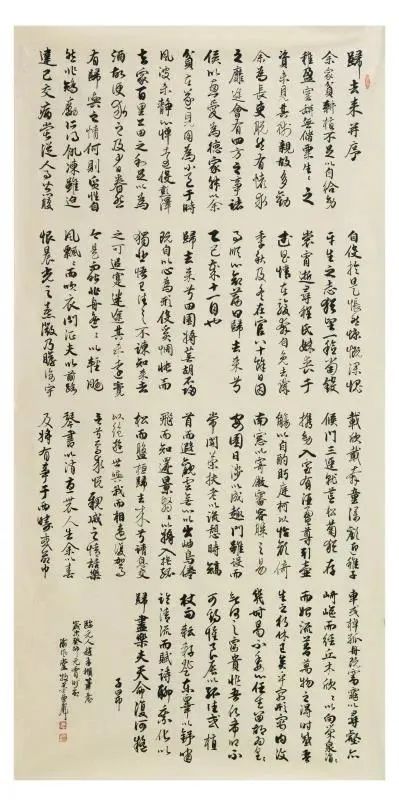 歸去來并序
余家貧耕植不足以自給幼
稚盈室缾無儲粟生生之
資未見其術親故多勸
余為長吏脫然有懷求
之靡途會有四方之事諸
侯以惠愛為德家叔以余
貧苦遂見用為小邑于時
風波未靜心憚遠役彭澤
去家百里公田之利足以為
酒故便求之及少日眷然
有歸與之情何則質性自
然非矯勵所得飢凍雖迫
違己交病嘗從人事皆口腹
自役於是悵然慷慨深愧
平生之志猶望一稔當斂
裳宵逝尋程氏妹喪于
武昌情在駿奔自免去職
季秋及冬在官八十餘日因
事順心命篇曰歸去來兮
乙巳歲十一月也
歸去來兮田園將蕪胡不歸
既自以心為形役奚惆悵而
獨悲悟已往之不諫知來者
之可追實迷途其未遠覺
今是而昨非舟遙遙以輕颺
風飄飄而吹衣問征夫以前路
恨晨光之熹微乃瞻衡宇
載欣載奔童僕歡迎稚子
候門三逕就荒松菊猶存
攜幼入室有酒盈尊引壺
觴以自酌眄庭柯以怡顏倚
南窗以寄傲審容膝之易
安園日涉以成趣門雖設而
常關策扶老以流憩時矯
首而遐觀雲無心以出岫鳥倦
飛而知還景翳翳以將入撫孤
松而盤桓歸去來兮請息交
以絕遊世與我而相遺復駕言
兮焉求悅親戚之情話樂
琴書以消憂農人告余以春
及將有事于西疇或命巾
車或棹孤舟既窈窕以尋壑亦
崎嶇而經丘木欣欣以向榮泉涓涓
而始流善萬物之得時感吾
生之行休已矣乎寓形宇內復
幾時曷不委心任去留胡為乎遑遑
欲何之富貴非吾願帝鄉不
可期懷良辰以孤往或植
杖而耘耔登東皋以舒嘯
臨清流而賦詩聊乘化以
歸盡樂夫天命復何疑
子昂
臨元人趙孟頫筆意